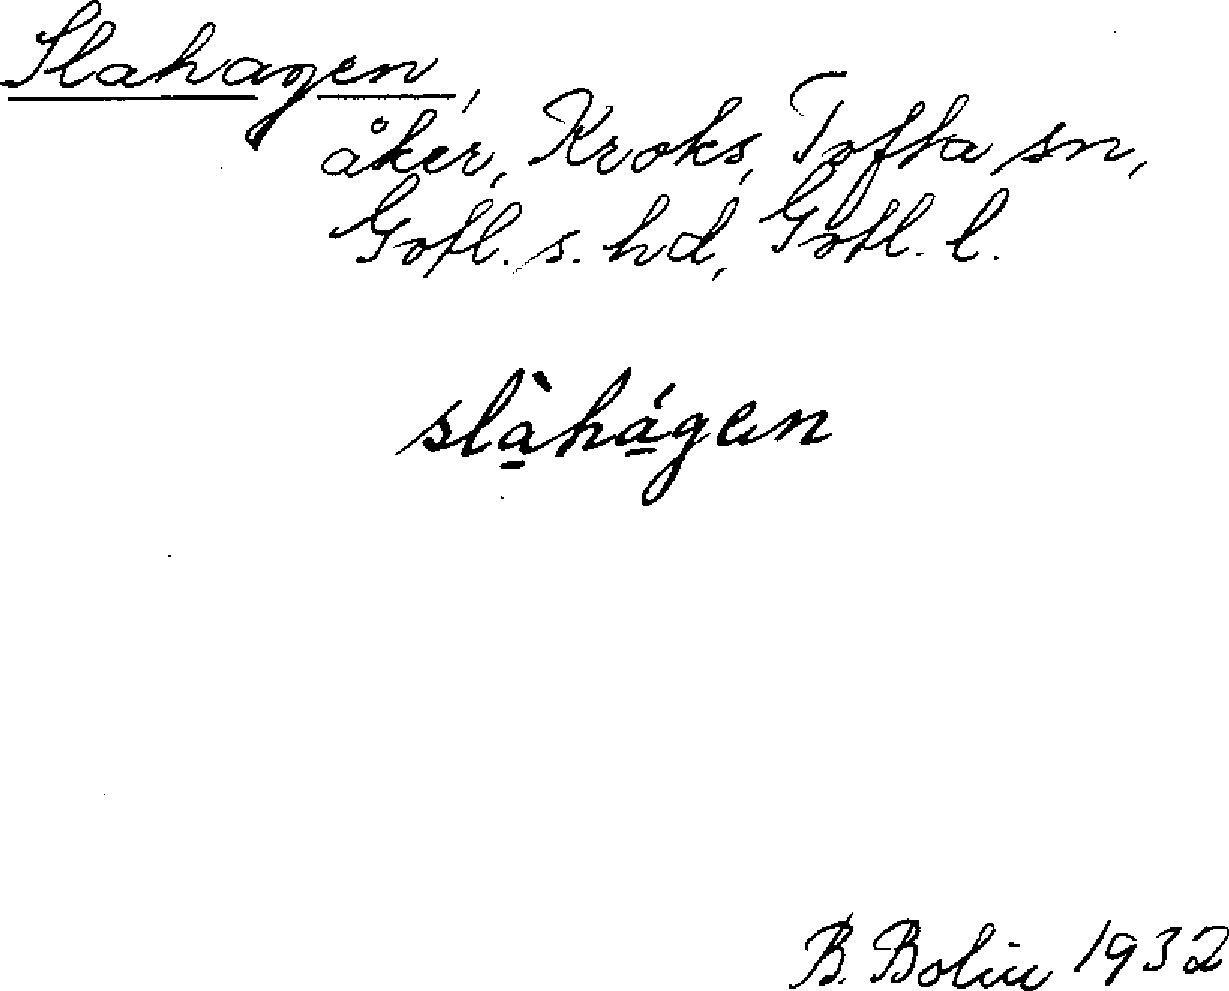 Slahagen,
åker, Kroks, Tofta sn,
Gotl. s. hd, Gotl. l.
slà̱há̱gen
B. Bolin 1932